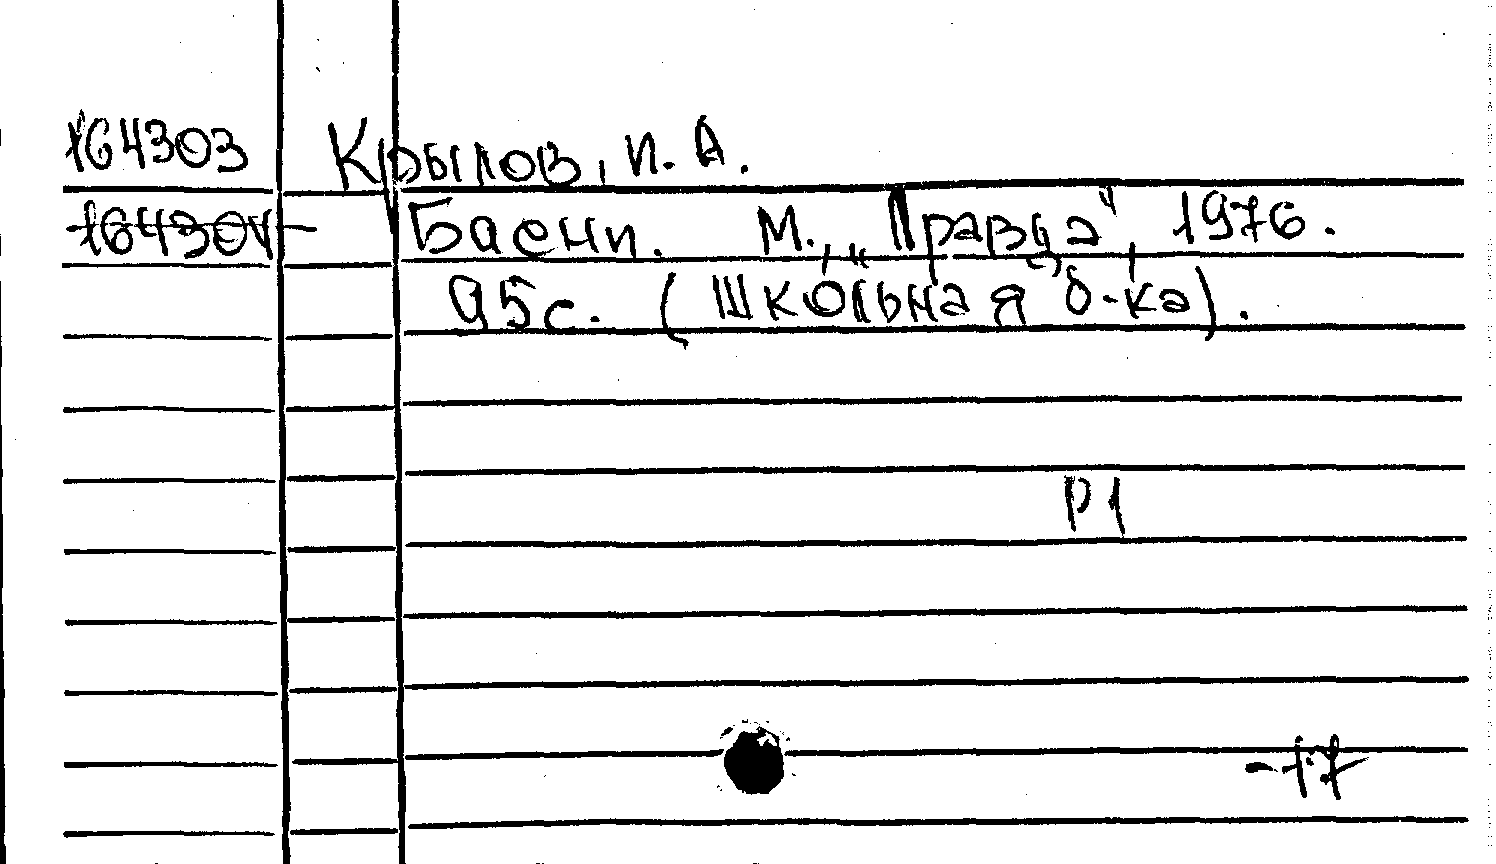 164303 Крылов, И. А.
164304 Басни. М., „Правда“, 1976.
95с. (Школьная б-ка).
Р1